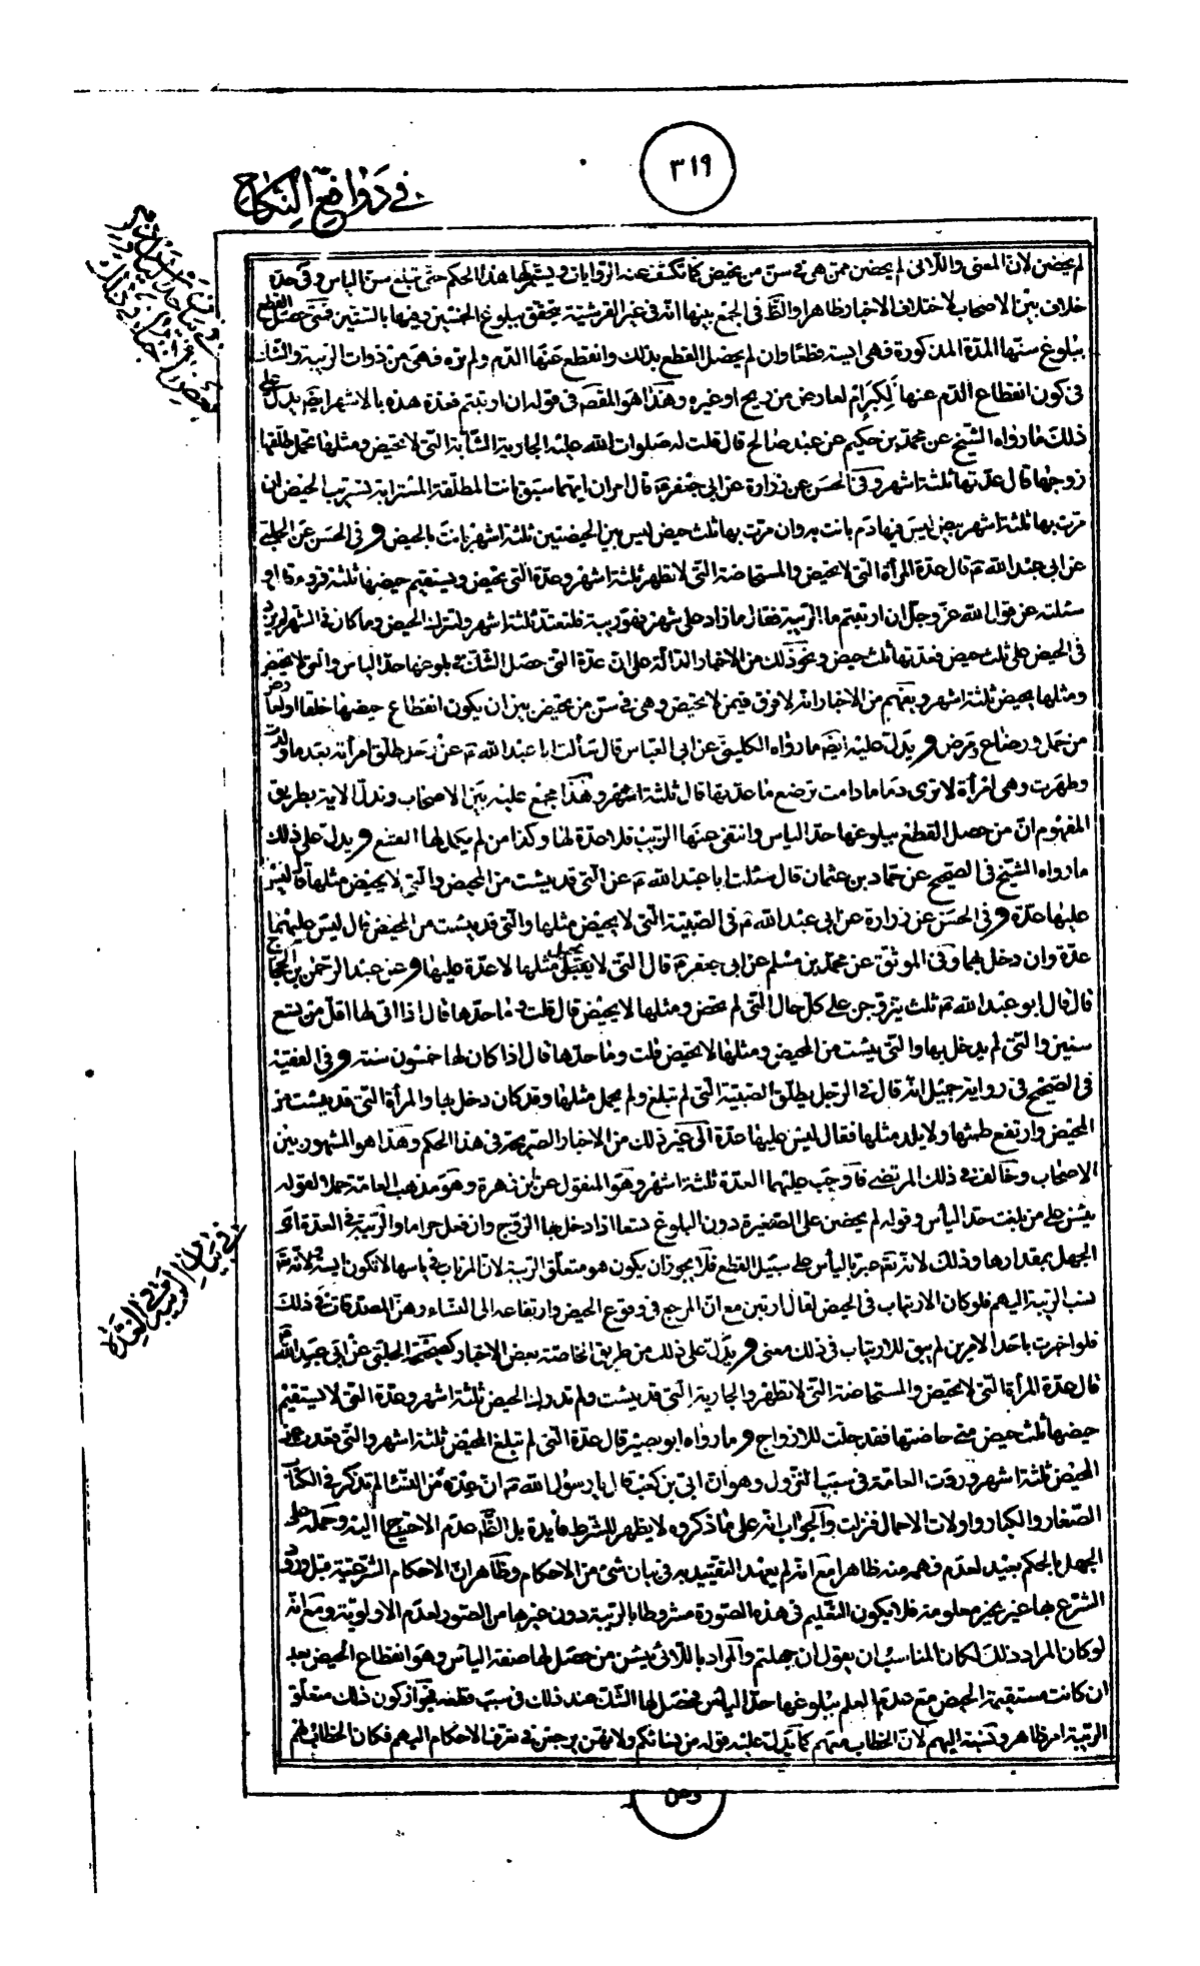 ٣١٩
في دوافع النكاح
لم يحضن لان المعنى واللائى لم يحضن ممن هى فى سن من تحيض كما تكشف عنه الروايات ويشملها هذا الحكم حتى تبلغ سن الياس وفى حده
خلاف بين الاصحاب لاختلاف الاخبار ظاهرا والظ فى الجمع بينها انه فى غير القرشية يتحقق ببلوغ الخمسين وفيها بالستين فمتى حصل القطع
ببلوغ سنها المدة المذكورة فهى ايسة قطعا وان لم يحصل القطع بذلك وانقطع عنها الدم ولم تره فهى من ذوات الريبة والشك
فى كون انقطاع الدم عنها لكبر ام لعارض من ريح او غيره وهذا هو المقصود فى قوله ان ارتبتم فعدة هذه بالاشهر ايضا يدل على
ذلك ما رواه الشيخ عن محمد بن حكيم عن عبد صالح قال قلت له صلوات الله عليه الجارية الشابة التى لا تحيض ومثلها تحمل طلقها
زوجها قال عدتها ثلثة اشهر وفى الحسن عن زرارة عن ابى جعفر ع قال امران ايهما سبق بانت المطلقة المسترابة تستريب الحيض ان
مرت بها ثلثة اشهر بيض ليس فيها دم بانت به وان مرت بها ثلث حيض ليس بين الحيضتين ثلثة اشهر بانت بالحيض وفى الحسن عن الحلبى
عن ابى عبد الله ع قال عدة المراة التى لا تحيض والمستحاضة التى لا تطهر ثلثة اشهر وعدة التى تحيض ويستقيم حيضها ثلثة قروء قال و
سئلته عن قول الله عز وجل ان ارتبتم ما الريبة فقال ما زاد على شهر فهو ريبة فلتعتد ثلثة اشهر ولتترك الحيض وما كان فى الشهر لم يزد
فى الحيض على ثلث حيض فعدتها ثلث حيض ونحو ذلك من الاخبار الدالة على ان عدة التى حصل الشك فى بلوغها حد الياس والتى لا تحيض
ومثلها يحيض ثلثة اشهر ويفهم من الاخبار انه لا فرق فيمن لا تحيض وهى فى سن من تحيض بين ان يكون انقطاع حيضها خلقا او لعارض
من حمل ورضاع ومرض ويدل عليه ايضا ما رواه الكلينى عن ابى العباس قال سألت ابا عبد الله ع عن رجل طلق امرأته بعد ما ولدت
وطهرت وهى امرأة لا ترى دما ما دامت ترضع ما عدتها قال ثلثة اشهر وهذا مجمع عليه بين الاصحاب وتدل الاية بطريق
المفهوم ان من حصل القطع ببلوغها حد الياس وانتفى عنها الريب فلا عدة لها وكذا من لم يكمل لها التسع ويدل على ذلك
ما رواه الشيخ فى الصحيح عن حماد بن عثمان قال سئلت ابا عبد الله ع عن التى قد يئست من المحيض والتى لا يحيض مثلها قال ليس
عليها عدة وفى الحسن عن زرارة عن ابى عبد الله ع فى الصبية التى لا يحيض مثلها والتى قد يئست من المحيض قال ليس عليهما
عدة وان دخل بهما وفى الموثق عن محمد بن مسلم عن ابى جعفر ع قال التى لا يحبل مثلها لا عدة عليها وعن عبد الرحمن بن الحجاج
قال قال ابو عبد الله ع ثلث يتزوجن على كل حال التى لم تحض ومثلها لا يحيض قال قلت وما حدها قال اذا اتى لها اقل من تسع
سنين والتى لم يدخل بها والتى يئست من المحيض ومثلها لا يحيض قلت وما حدها قال اذا كان لها خمسون سنة وفى الفقيه
فى الصحيح فى رواية جميل انه قال فى الرجل يطلق الصبية التى لم تبلغ ولم يحمل مثلها وقد كان دخل بها والمرأة التى قد يئست من
المحيض وارتفع طمثها ولا يلد مثلها فقال ليس عليها عدة الى غير ذلك من الاخبار الصريحة فى هذا الحكم وهذا هو المشهور بين
الاصحاب وخالف فى ذلك المرتضى فاوجب عليهما العدة ثلثة اشهر وهو المنقول عن ابن زهرة وهو مذهب العامة حملا لقوله
يئسن على من بلغت حد الياس وقوله لم يحضن على الصغيرة دون البلوغ تسعا اذا دخل بها الزوج وان فعل حراما والريبة فى العدة اى
الجهل بمقدارها وذلك لانه تع خبر باليأس على سبيل القطع فلا يجوز ان يكون هو متعلق الريبة لان المرتاب فى ياسها لا تكون ايسة ولانه تع
نسب الريبة اليهم فلو كان الارتياب فى الحيض لقال ارتبن مع ان المرجع فى وقوع الحيض وارتفاعه الى النساء وهن المصدقات فى ذلك
فلو اخبرت باحد الامرين لم يبق للارتياب فى ذلك معنى ويدل على ذلك من طريق الخاصة بعض الاخبار كصحيحة الحلبى عن ابى عبد الله ع
قال عدة المرأة التى لا تحيض والمستحاضة التى لا تطهر والجارية التى قد يئست ولم تدرك الحيض ثلثة اشهر وعدة التى لا يستقيم
حيضها ثلث حيض متى حاضتها فقد حلت للازواج وما رواه ابو بصير قال عدة التى لم تبلغ المحيض ثلثة اشهر والتى قعدت عن
المحيض ثلثة اشهر وروت العامة فى سبب النزول وهو ان ابى بن كعب قال يا رسول الله ص ان عددا من النساء لم تذكر فى الكتاب
الصغار والكبار واولات الاحمال فنزلت والجواب انه على ما ذكروه لا يظهر للشرط فايدة بل الظ عدم الاحتياج اليه وحمله على
الجهل بالحكم بعيد لعدم فهمه منه ظاهرا مع انه لم يعهد التقييد به فى بيان شئ من الاحكام وظاهر ان الاحكام الشرعية قبل ورود
الشرع بها غير معلومة فلا يكون التعليم فى هذه الصورة مشروطا بالريبة دون غيرها من الصور لعدم الاولوية ومع انه
لو كان المراد ذلك لكان المناسب ان يقول ان جهلتم والمراد باللائى يئسن من حصل لها صفة الياس وهو انقطاع الحيض بعد
ان كانت مستقيمة الحيض مع عدم العلم ببلوغها حد الياس فحصل لها الشك عند ذلك فى سبب قطعه فجواز كون ذلك متعلق
الريبة امر ظاهر ونسبته اليهم لان الخطاب معهم كما يدل عليه قوله من نسائكم ولانهن يرجعن فى تعرف الاحكام اليهم فكان الخطاب لهم
فى بيان الريبة فى العدة